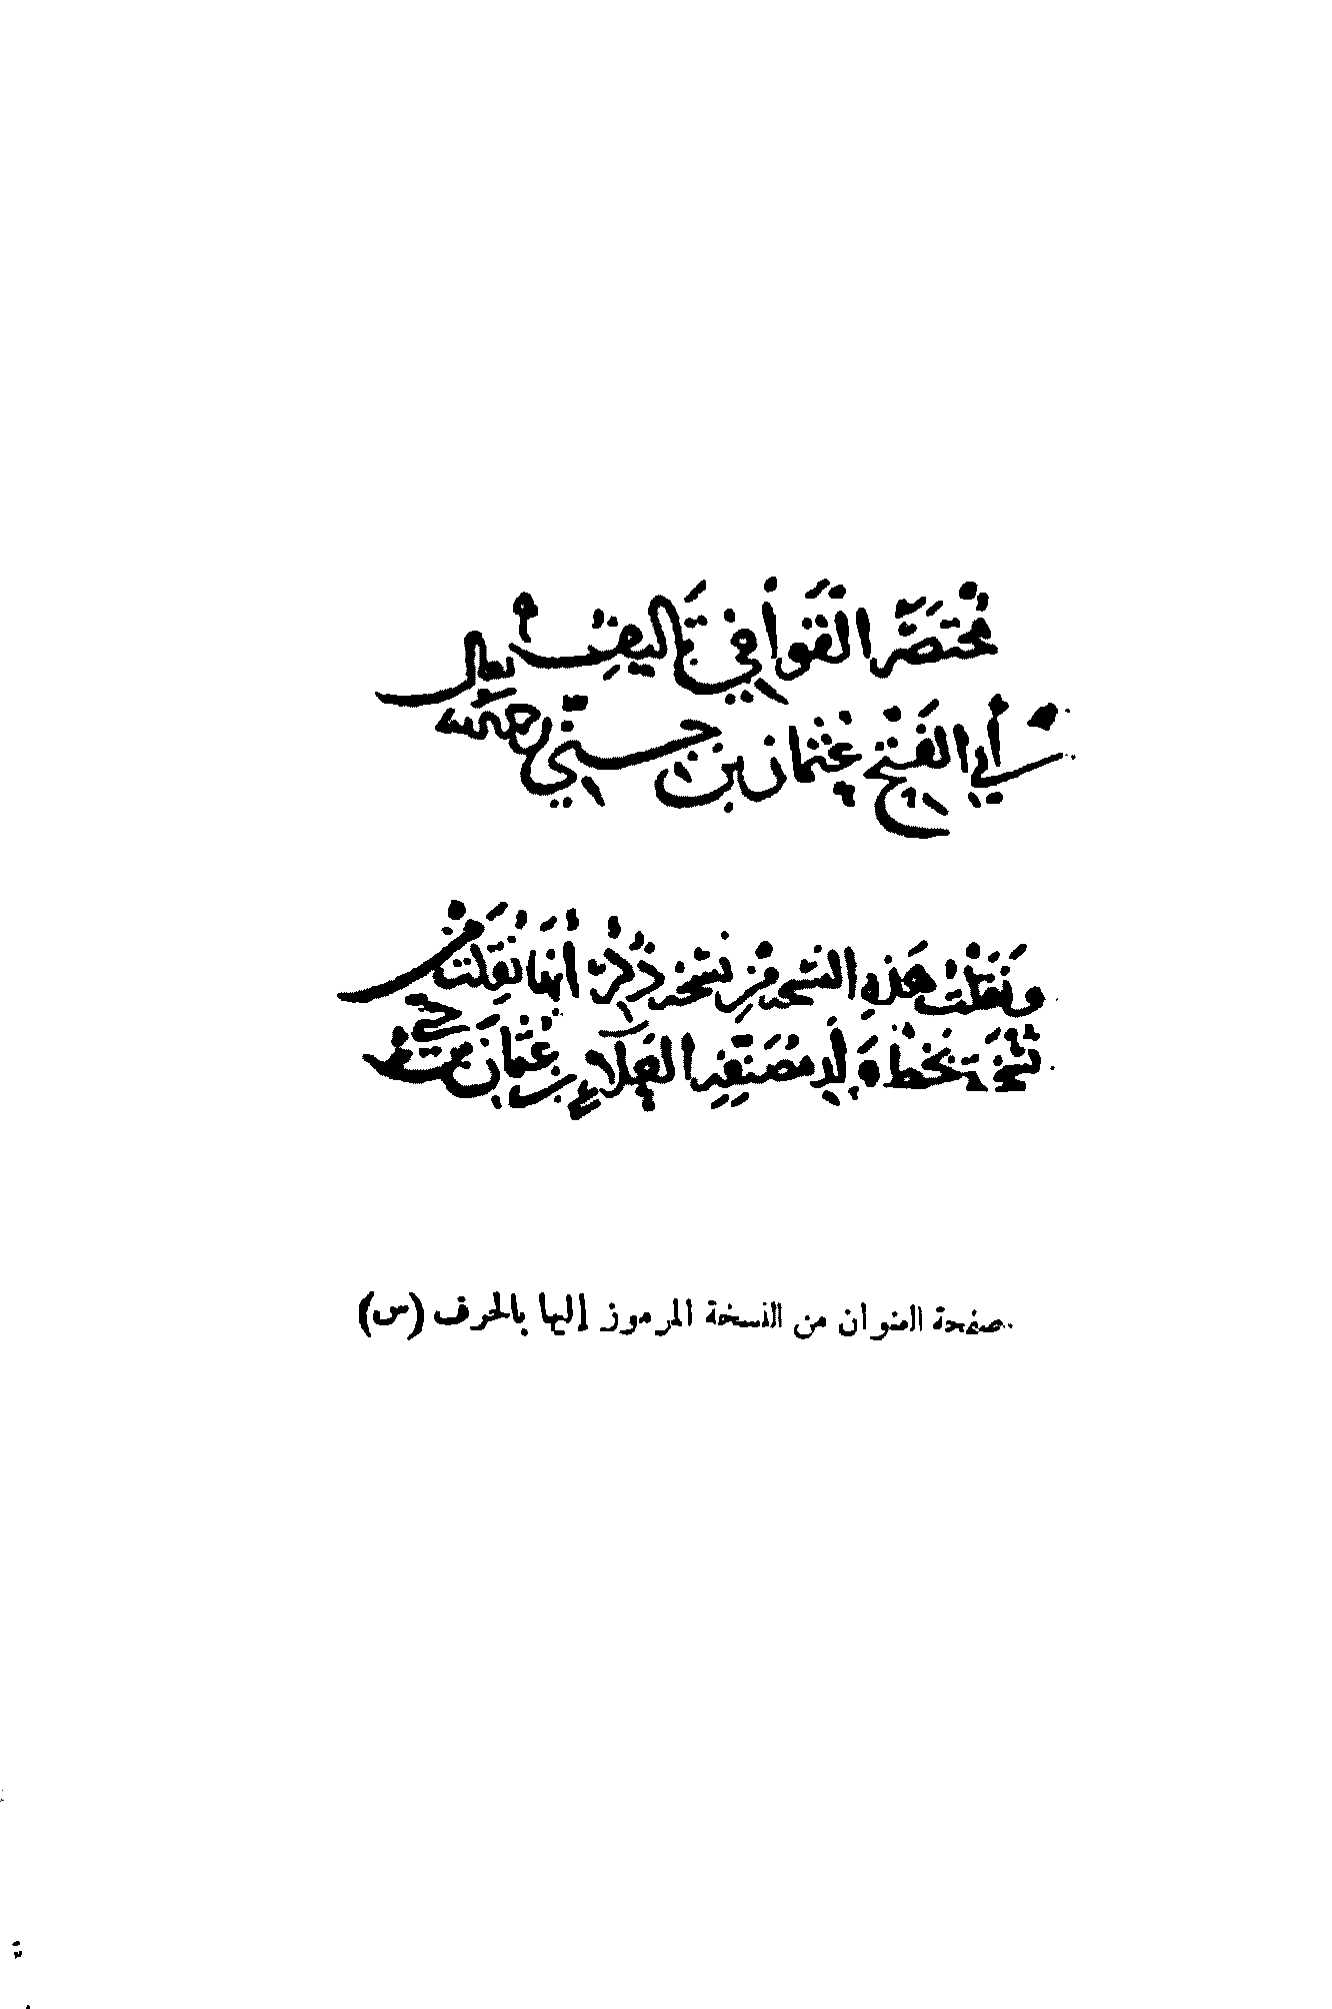 مُختَصَرُ القَوافي تَأليفُ
أبي الفَتْحِ عُثمانَ بنِ جِنّي رحمه الله تعالى
ونَقَلْتُ هَذِهِ النسخة مِنْ نسخة ذُكِرَ أنها نُقِلَت من
نُسْخَةٍ بخَطِّ وَلَدِ مُصَنِّفِهِ العَلاءِ بنِ عُثمَانَ بنِ جني
صفحة العنوان من النسخة المرموز إليها بالحرف (س)